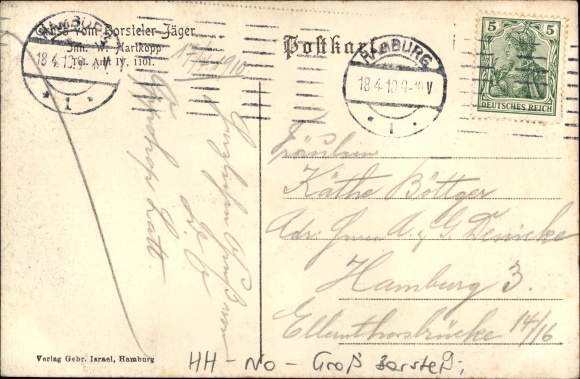 Gruss vom Borsteler-Jäger
Inh. W. Hartkopp
Tel. Amt IV, 1101.
HAMBURG
18.4.10
* 1 *
17/4 1910
Postkarte
HAMBURG
18.4.10.9-10V
* 1 *
5 5
DEUTSCHES REICH
Fräulein
Käthe Böttger
Adr. A. & G. Denicke
Hamburg 3.
Ellernthorsbrücke 14/16
Verlag Gebr. Israel, Hamburg
HH - No - Groß Borstel;